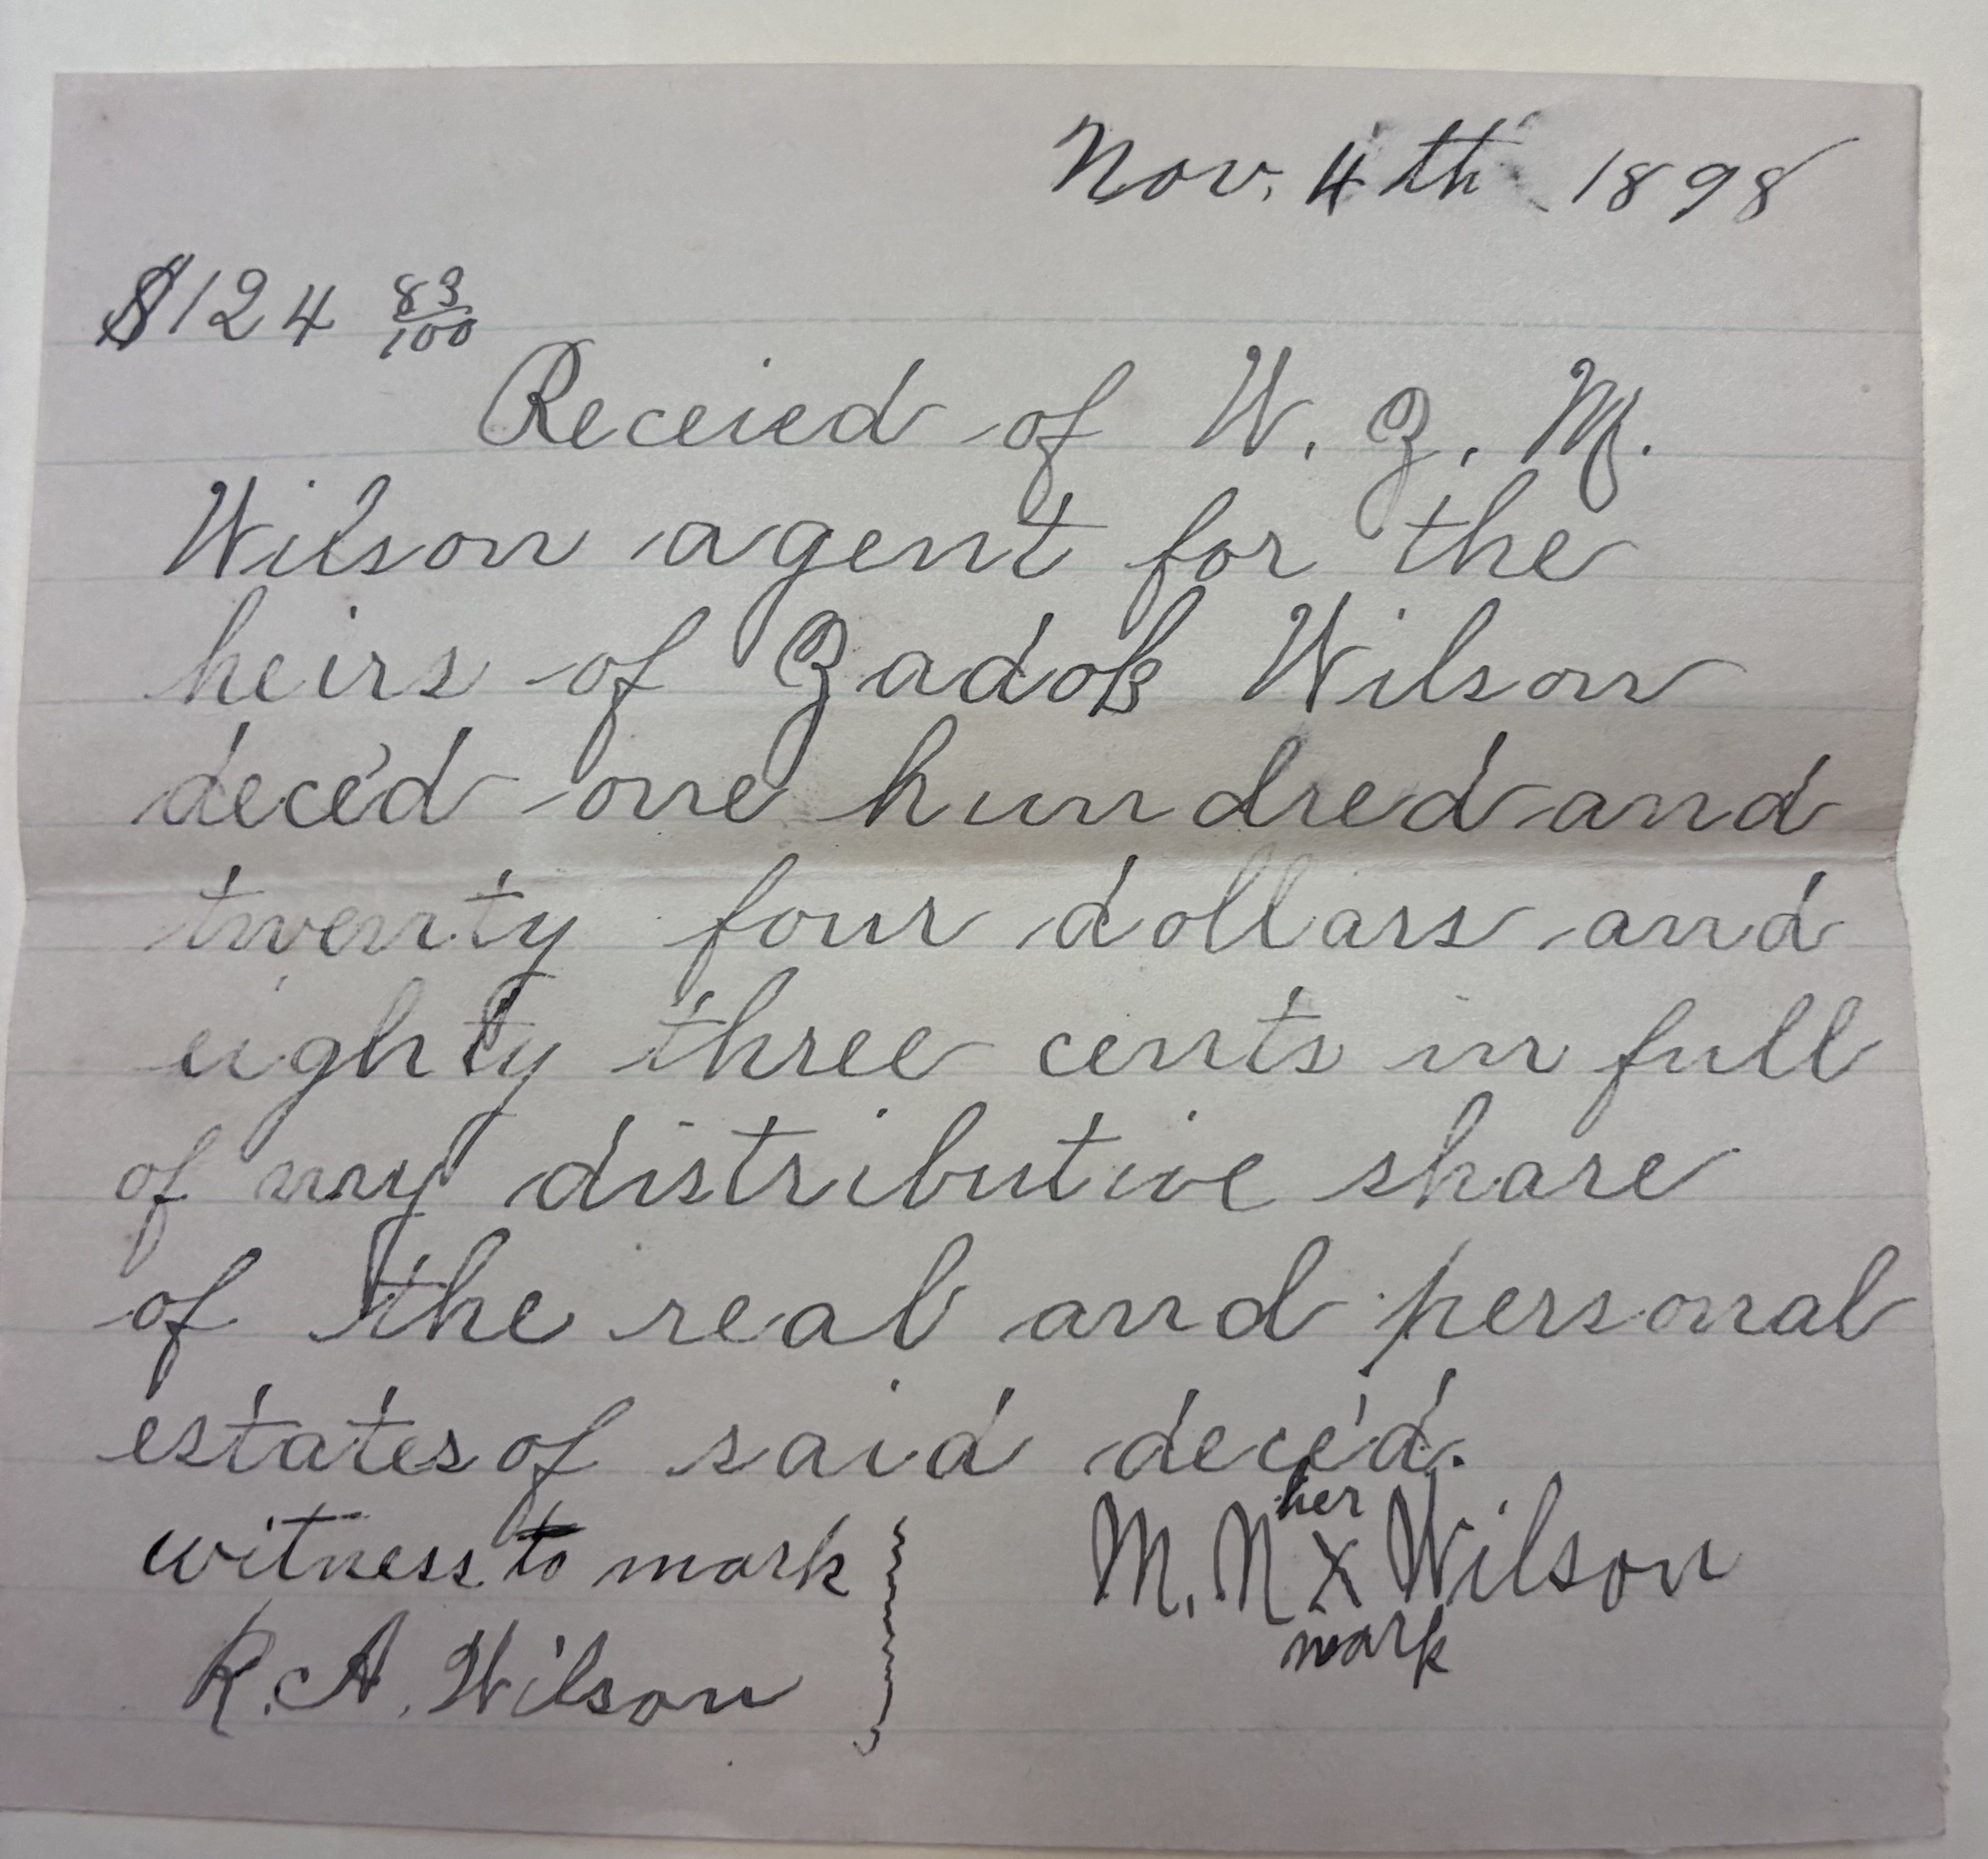 Nov. 4th 1898
$124 83/100
Receied of W. Z. M.
Wilson agent for the
heirs of Zadok Wilson
dece'd one hundred and
twenty four dollars and
eighty three cents in full
of my distributive share
of the real and personal
estates of said dece'd.
witness to mark
R. A. Wilson
her
M. N X Wilson
mark